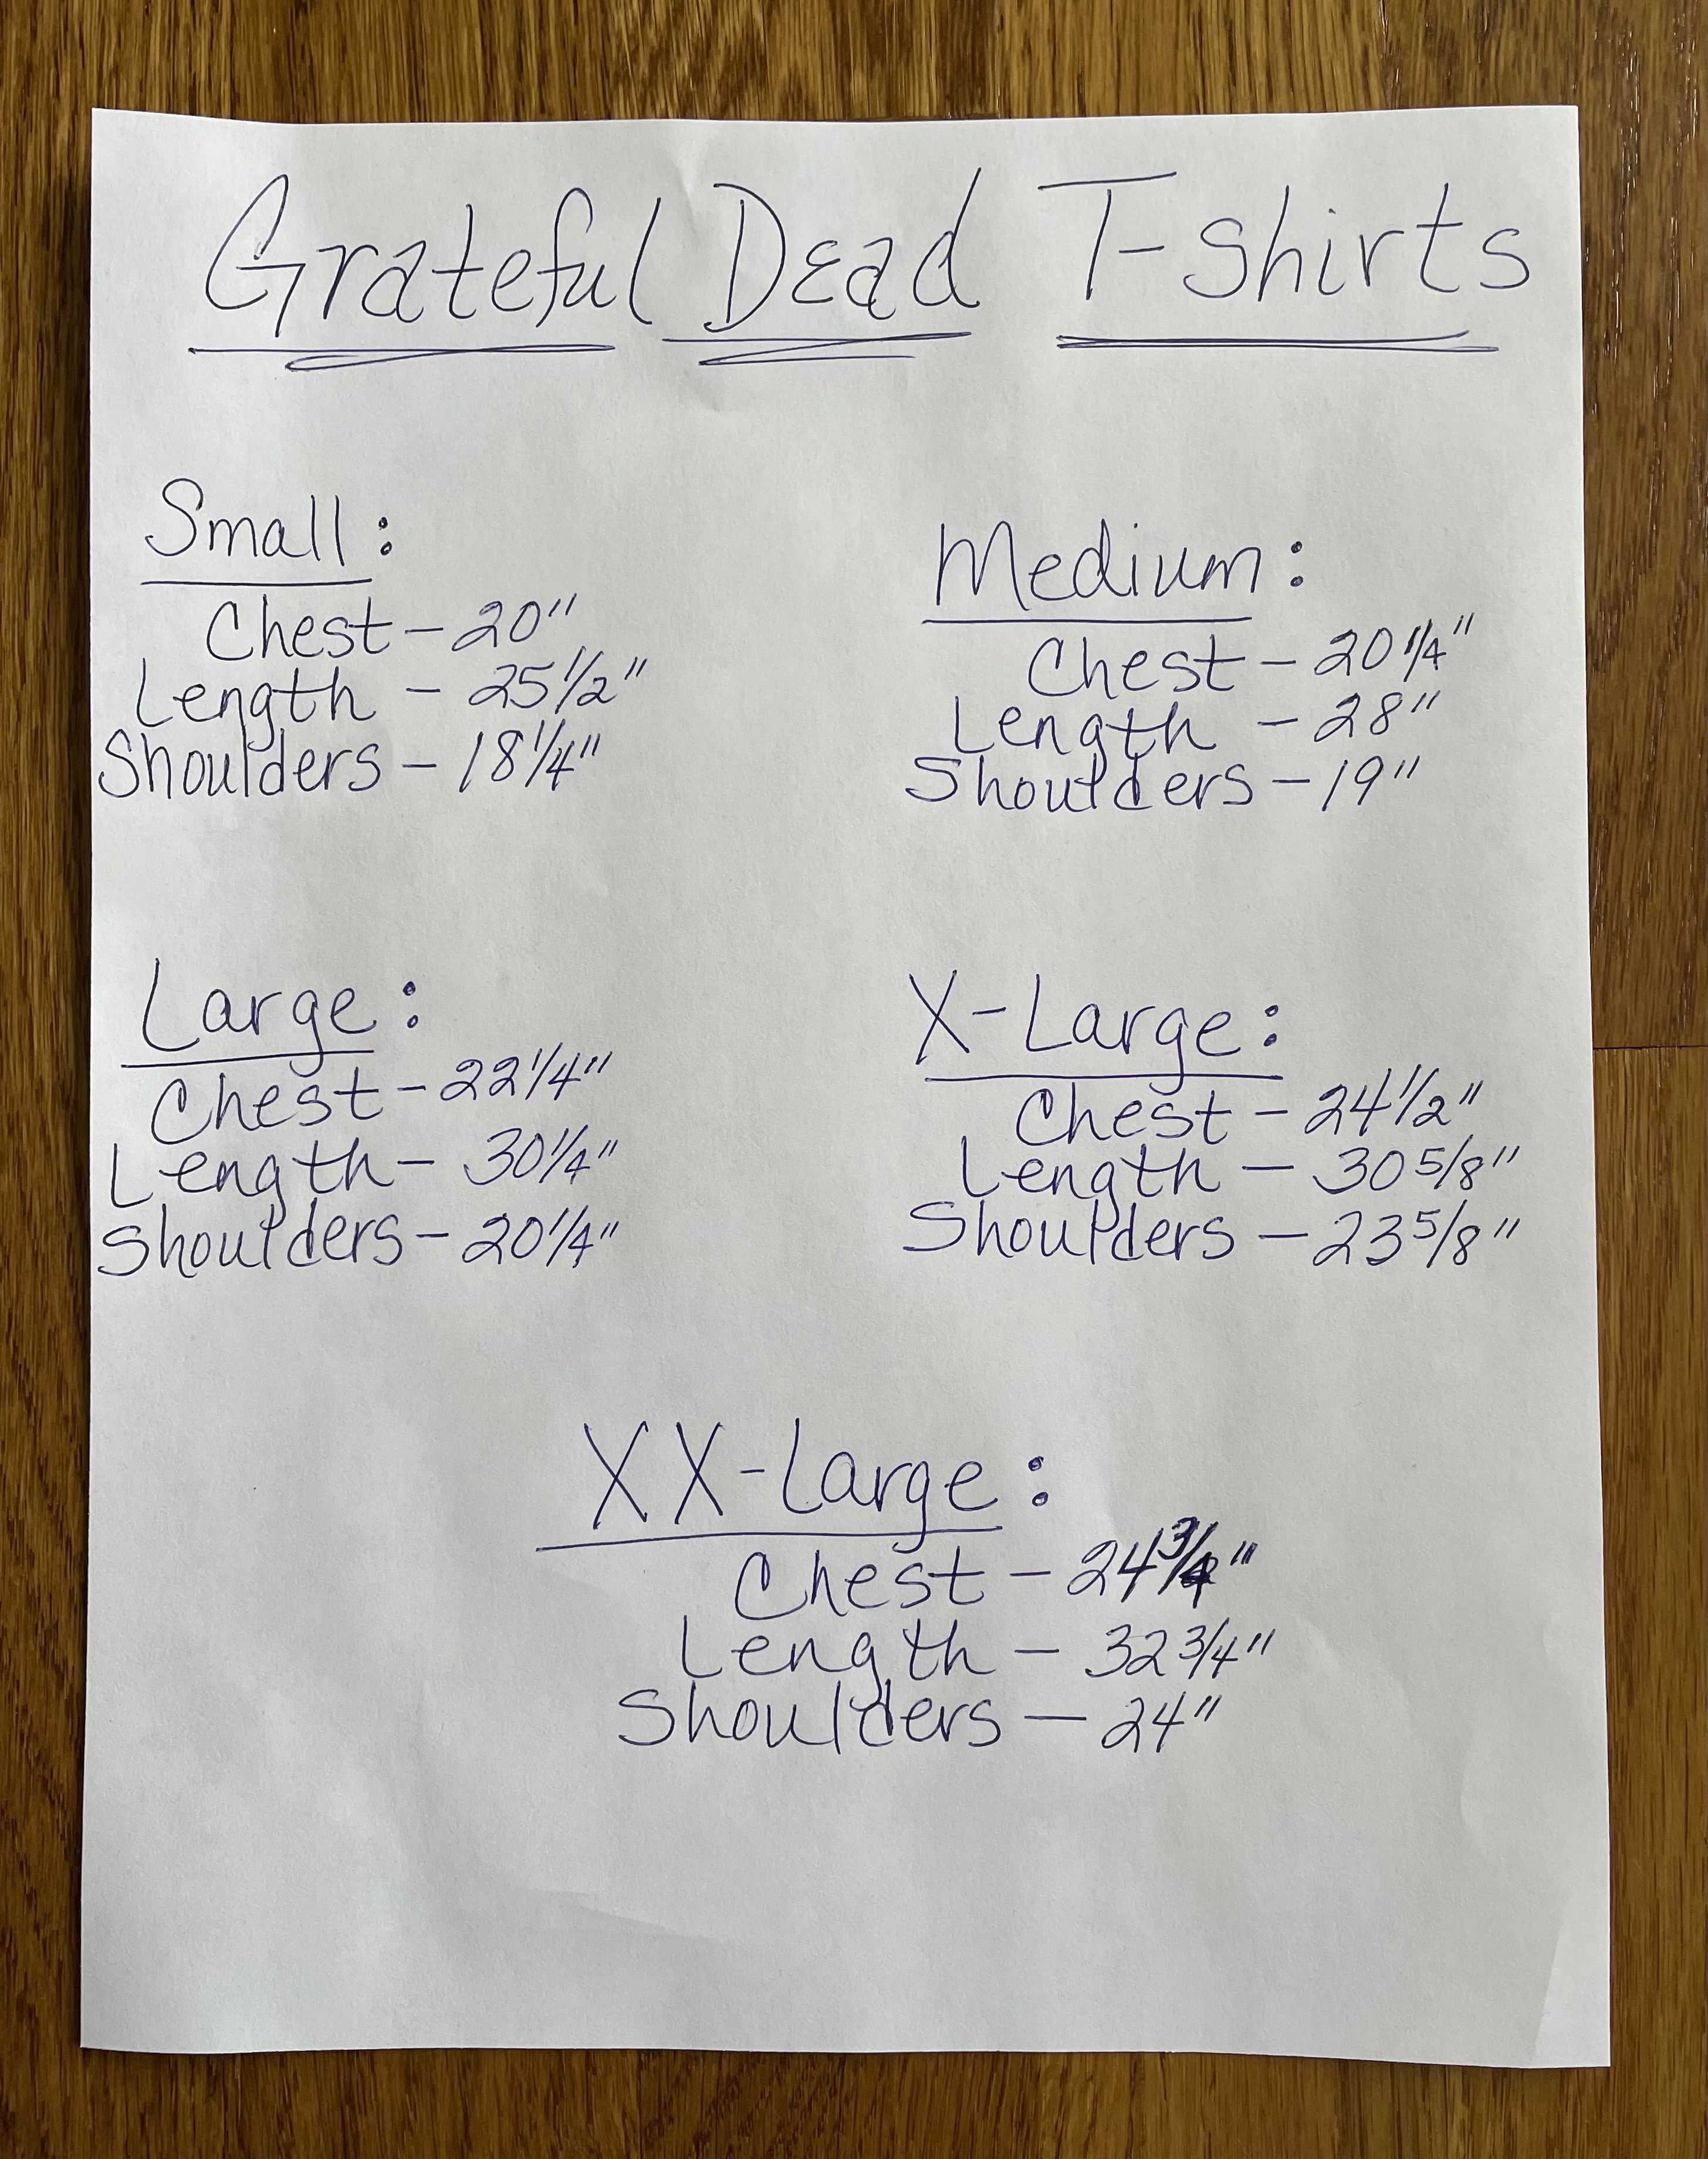 Grateful Dead T-shirts
Small:
Chest - 20"
Length - 25 1/2"
Shoulders - 18 1/4"
Medium:
Chest - 20 1/4"
Length - 28"
Shoulders - 19"
Large:
Chest - 22 1/4"
Length - 30 1/4"
Shoulders - 20 1/4"
X-Large:
Chest - 24 1/2"
Length - 30 5/8"
Shoulders - 23 5/8"
XX-Large:
Chest - 24 3/4"
Length - 32 3/4"
Shoulders - 24"